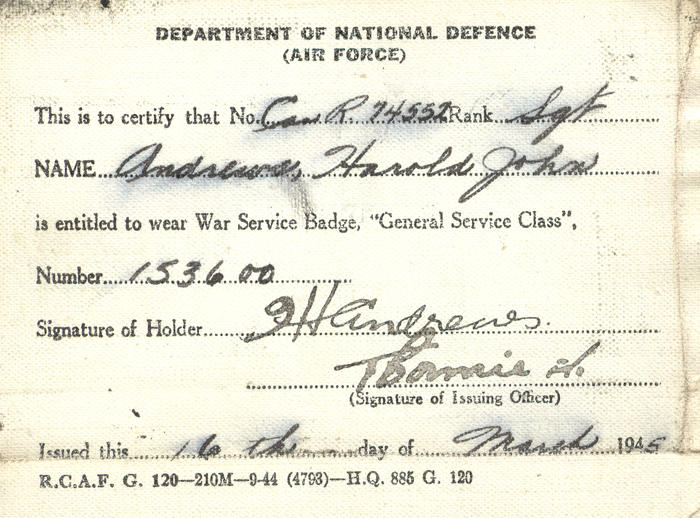 DEPARTMENT OF NATIONAL DEFENCE
(AIR FORCE)
This is to certify that No. Can. R. 74552 Rank Sgt
NAME Andrews, Harold John
is entitled to wear War Service Badge, "General Service Class",
Number 153600
Signature of Holder HAndrews.
(Signature of Issuing Officer)
Issued this 16 th day of March 1945
R.C.A.F. G. 120—210M—9-44 (4793)—H.Q. 885 G. 120